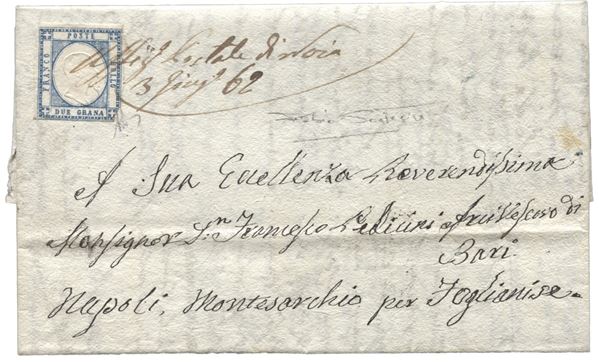 FRANCO
POSTE
BOLLO
DUE GRANA
Uffiz. Postale di Noia
3 Giug. 62
A Sua Eccellenza Reverendissima
Monsignor D.n Francesco Pedicini Arcivescovo di
Bari
Napoli, Montesarchio per Foglianise.